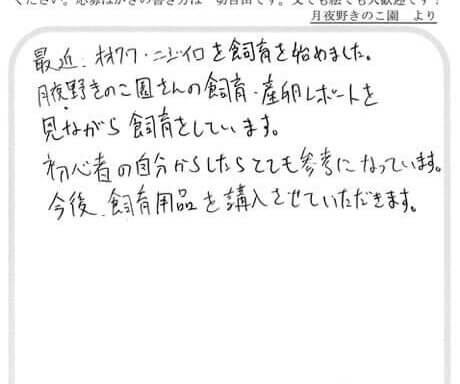 ください。応募はがきの書き方は一切自由です。文でも絵でも大歓迎です！
月夜野きのこ園　より
最近、オオクワ・ニジイロを飼育を始めました。
月夜野きのこ園さんの飼育・産卵レポートを
見ながら飼育をしています。
初心者の自分からしたらとても参考になっています。
今後、飼育用品を購入させていただきます。